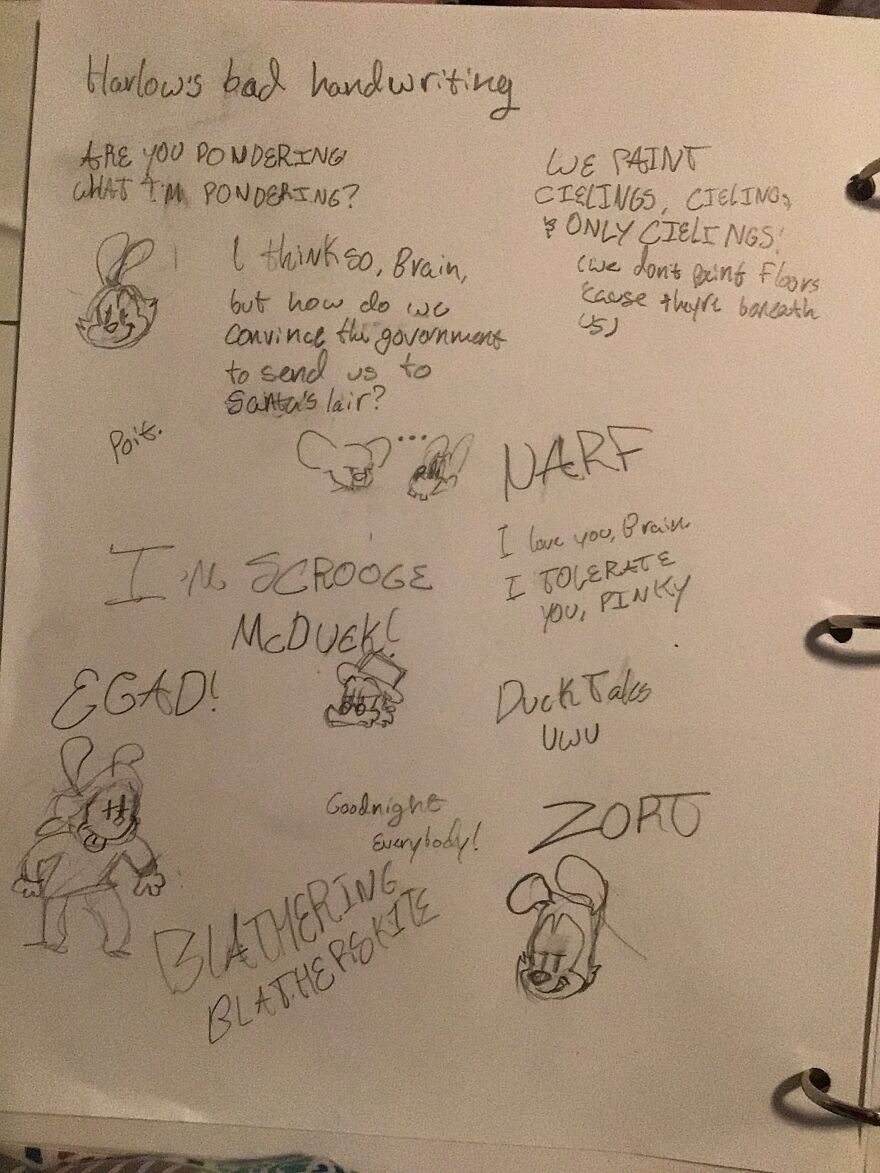 Harlow's bad handwriting
ARE YOU PONDERING
WHAT I'M PONDERING?
I think so, Brain,
but how do we
convince the government
to send us to
Santa's lair?
WE PAINT
CIELINGS, CIELINGS
& ONLY CIELINGS!
(we don't paint floors
'cause they're beneath
us)
Poit.
...
NARF
I love you, Brain
I TOLERATE
YOU, PINKY
I'M SCROOGE
McDUCK!
EGAD!
DuckTales
UWU
Goodnight
Everybody!
ZORT
BLATHERING
BLATHERSKITE